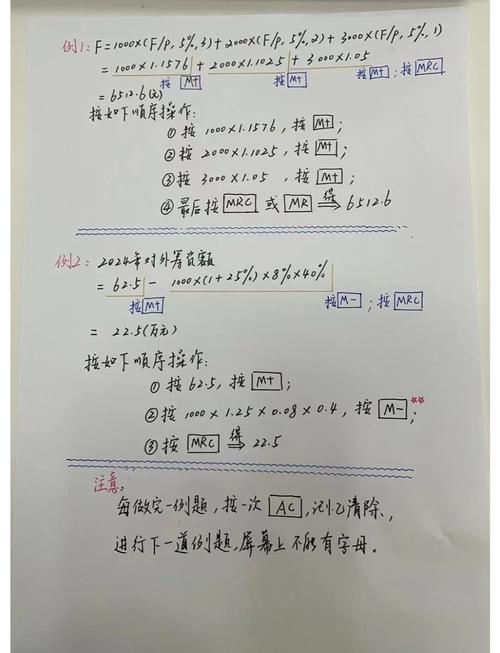 例1: F=1000×(F/P,5%,3)+2000×(F/P,5%,2)+3000×(F/P,5%,1)
=1000×1.1576+2000×1.1025+3000×1.05
按 M+ 按 M+ 按 M+ ; 按 MRC
=6512.6(元)
按如下顺序操作:
①按 1000×1.1576, 按 M+ ;
②按 2000×1.1025, 按 M+ ;
③按 3000×1.05 , 按 M+ ;
④最后按 MRC 或 MR 得⇒ 6512.6
例2: 2024年对外筹资额
= 62.5 - 1000×(1+25%)×8%×40%
按 M+ 按 M- ; 按 MRC
= 22.5(万元)
按如下顺序操作:
①按 62.5, 按 M+ ;
②按 1000×1.25×0.08×0.4, 按 M- ;**
③按 MRC 得⇒ 22.5
注意:
每做完一例题, 按一次 AC , 记忆清除,
进行下一道例题, 屏幕上不能有字母。